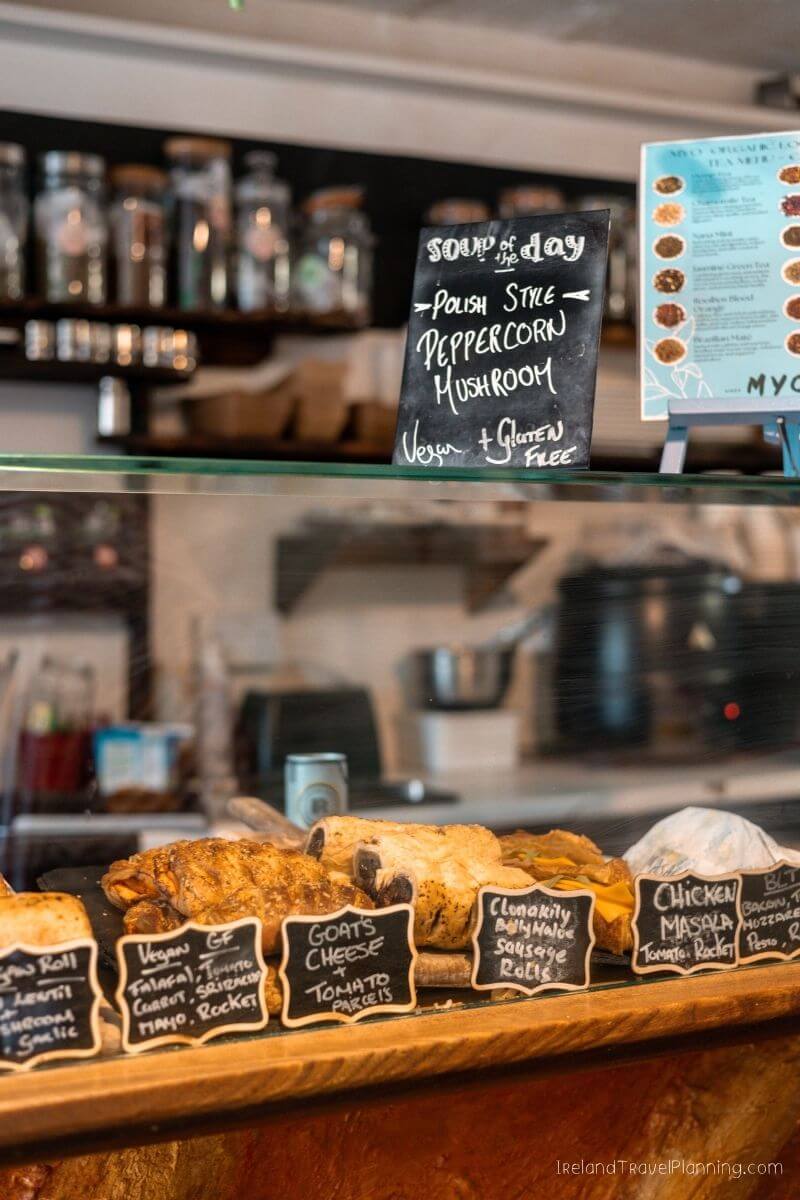 SOUP of the Day
POLISH STYLE
PEPPERCORN
MUSHROOM
Vegan + GLUTEN
FREE
MYO ORGANIC
TEA MENU
Chamomile Tea
Nana Mint
Jasmine Green Tea
Rooibos Blood
Orange
Brazilian Maté
MYO
ROLL
LENTIL
+
GARLIC
VEGAN GF
FALAFAL, TOMATO
CARROT, SRIRACHA
MAYO, ROCKET
GOATS
CHEESE
+
TOMATO
PARCELS
Clonakilty
BallyMaloe
SAUSAGE
ROLLS
CHICKEN
MASALA
TOMATO, ROCKET
BLT
BACON,
MOZZARE
PESTO,
IRELANDTRAVELPLANNING.COM